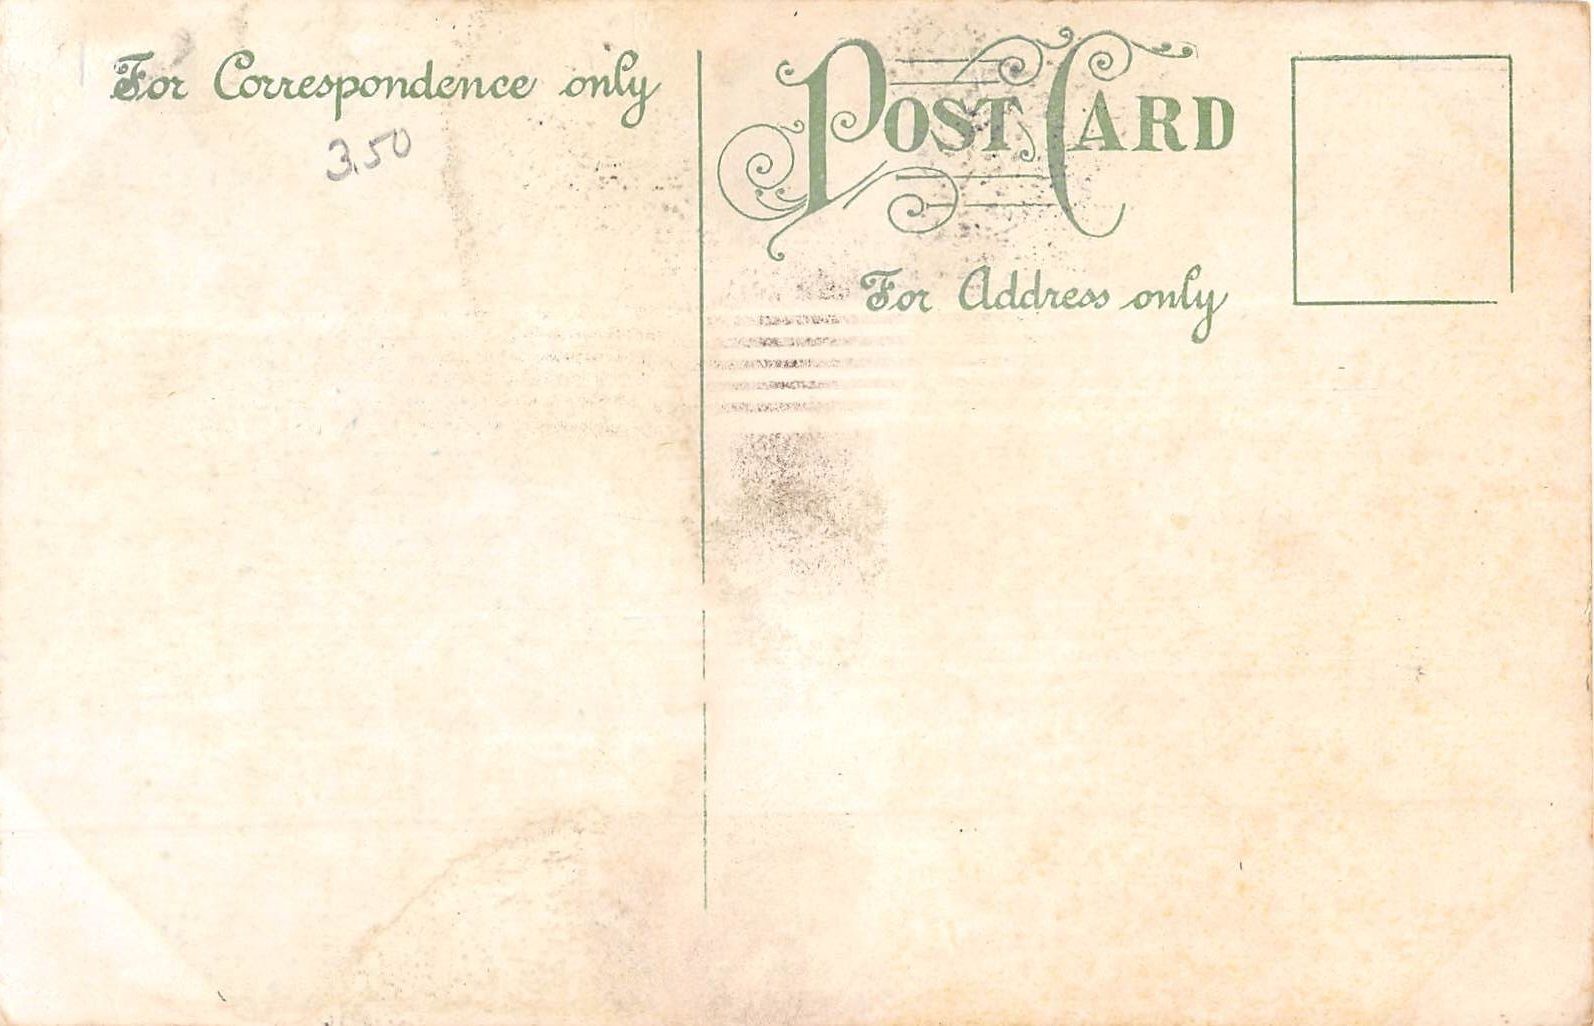 For Correspondence only
3.50
POST CARD
For Address only